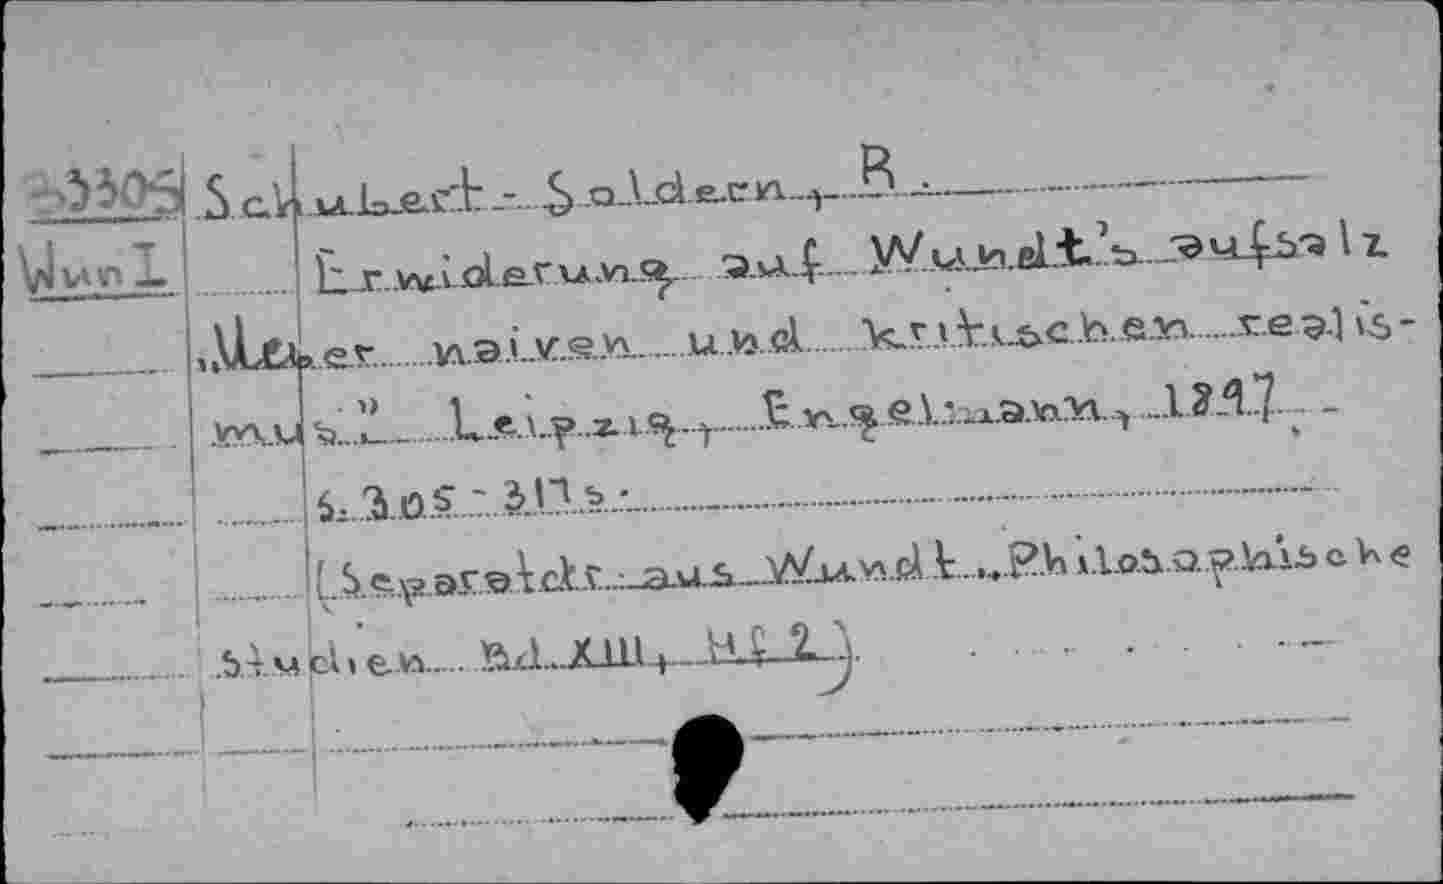 Schubert-Soldern, R.
Wun I Erwiderung auf Wundt's Aufsalz
„Ueber naiven und kritischen realis-
mus." Leipzig, Engelmann, 1897. -
s. 305-317 s.
(Separatdr. aus Wundt „Philosophische
Studien. Bd. XIII, Hf 2)